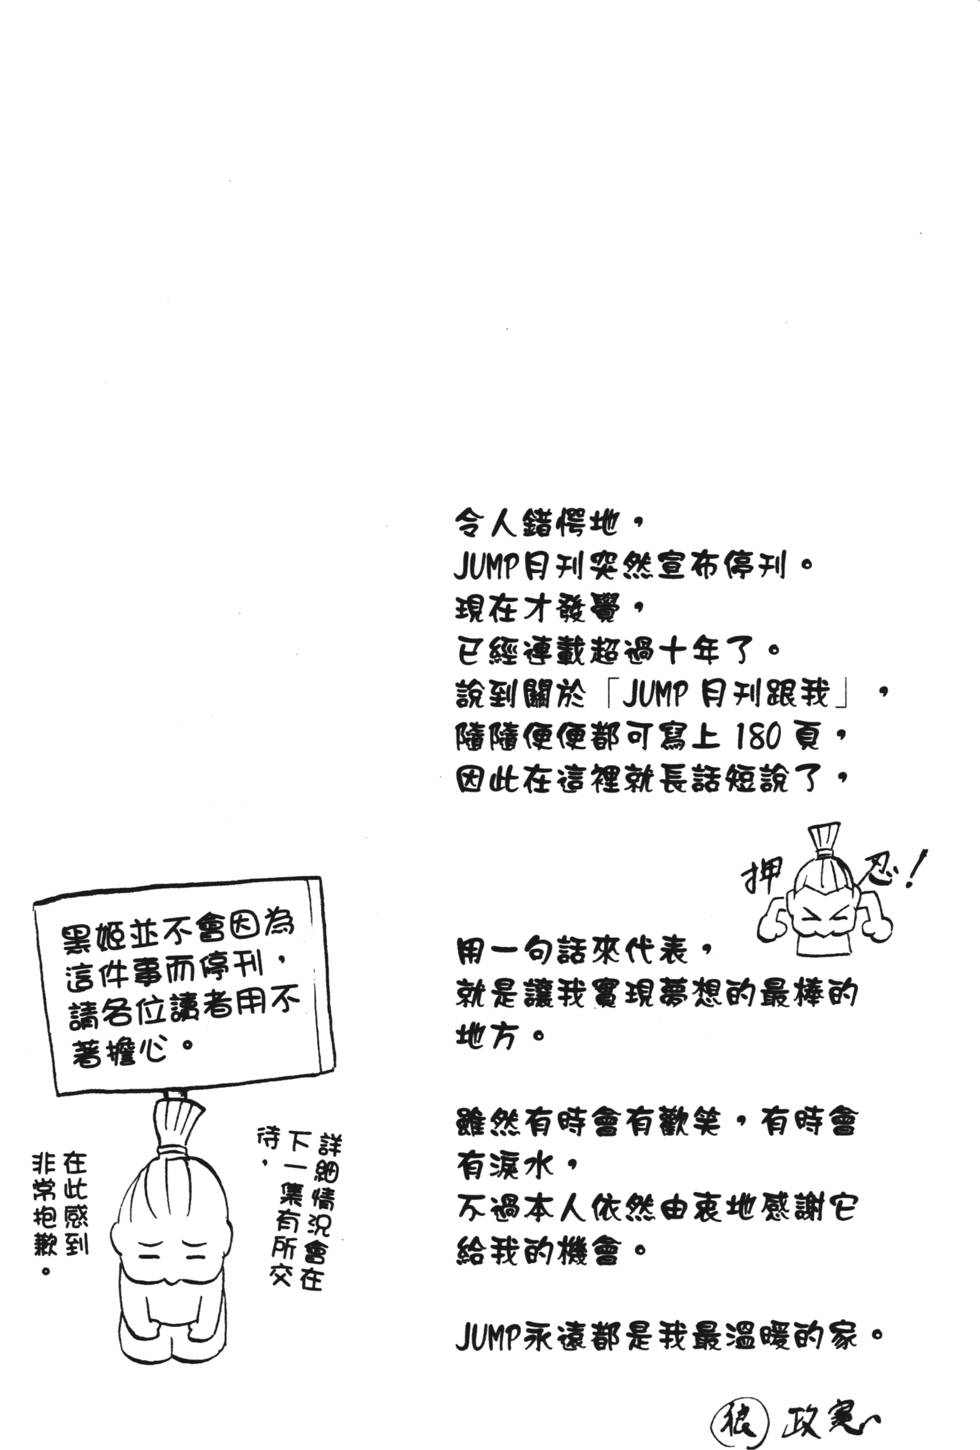 令人錯愕地，
JUMP月刊突然宣布停刊。
現在才發覺，
已經連載超過十年了。
說到關於「JUMP月刊跟我」，
隨隨便便都可寫上180頁，
因此在這裡就長話短說了，
押忍！
用一句話來代表，
就是讓我實現夢想的最棒的
地方。
雖然有時會有歡笑，有時會
有淚水，
不過本人依然由衷地感謝它
給我的機會。
JUMP永遠都是我最溫暖的家。
狼 政憲
黑姬並不會因為
這件事而停刊，
請各位讀者用不
著擔心。
詳細情況會在
下一集有所交
待，
在此感到
非常抱歉。